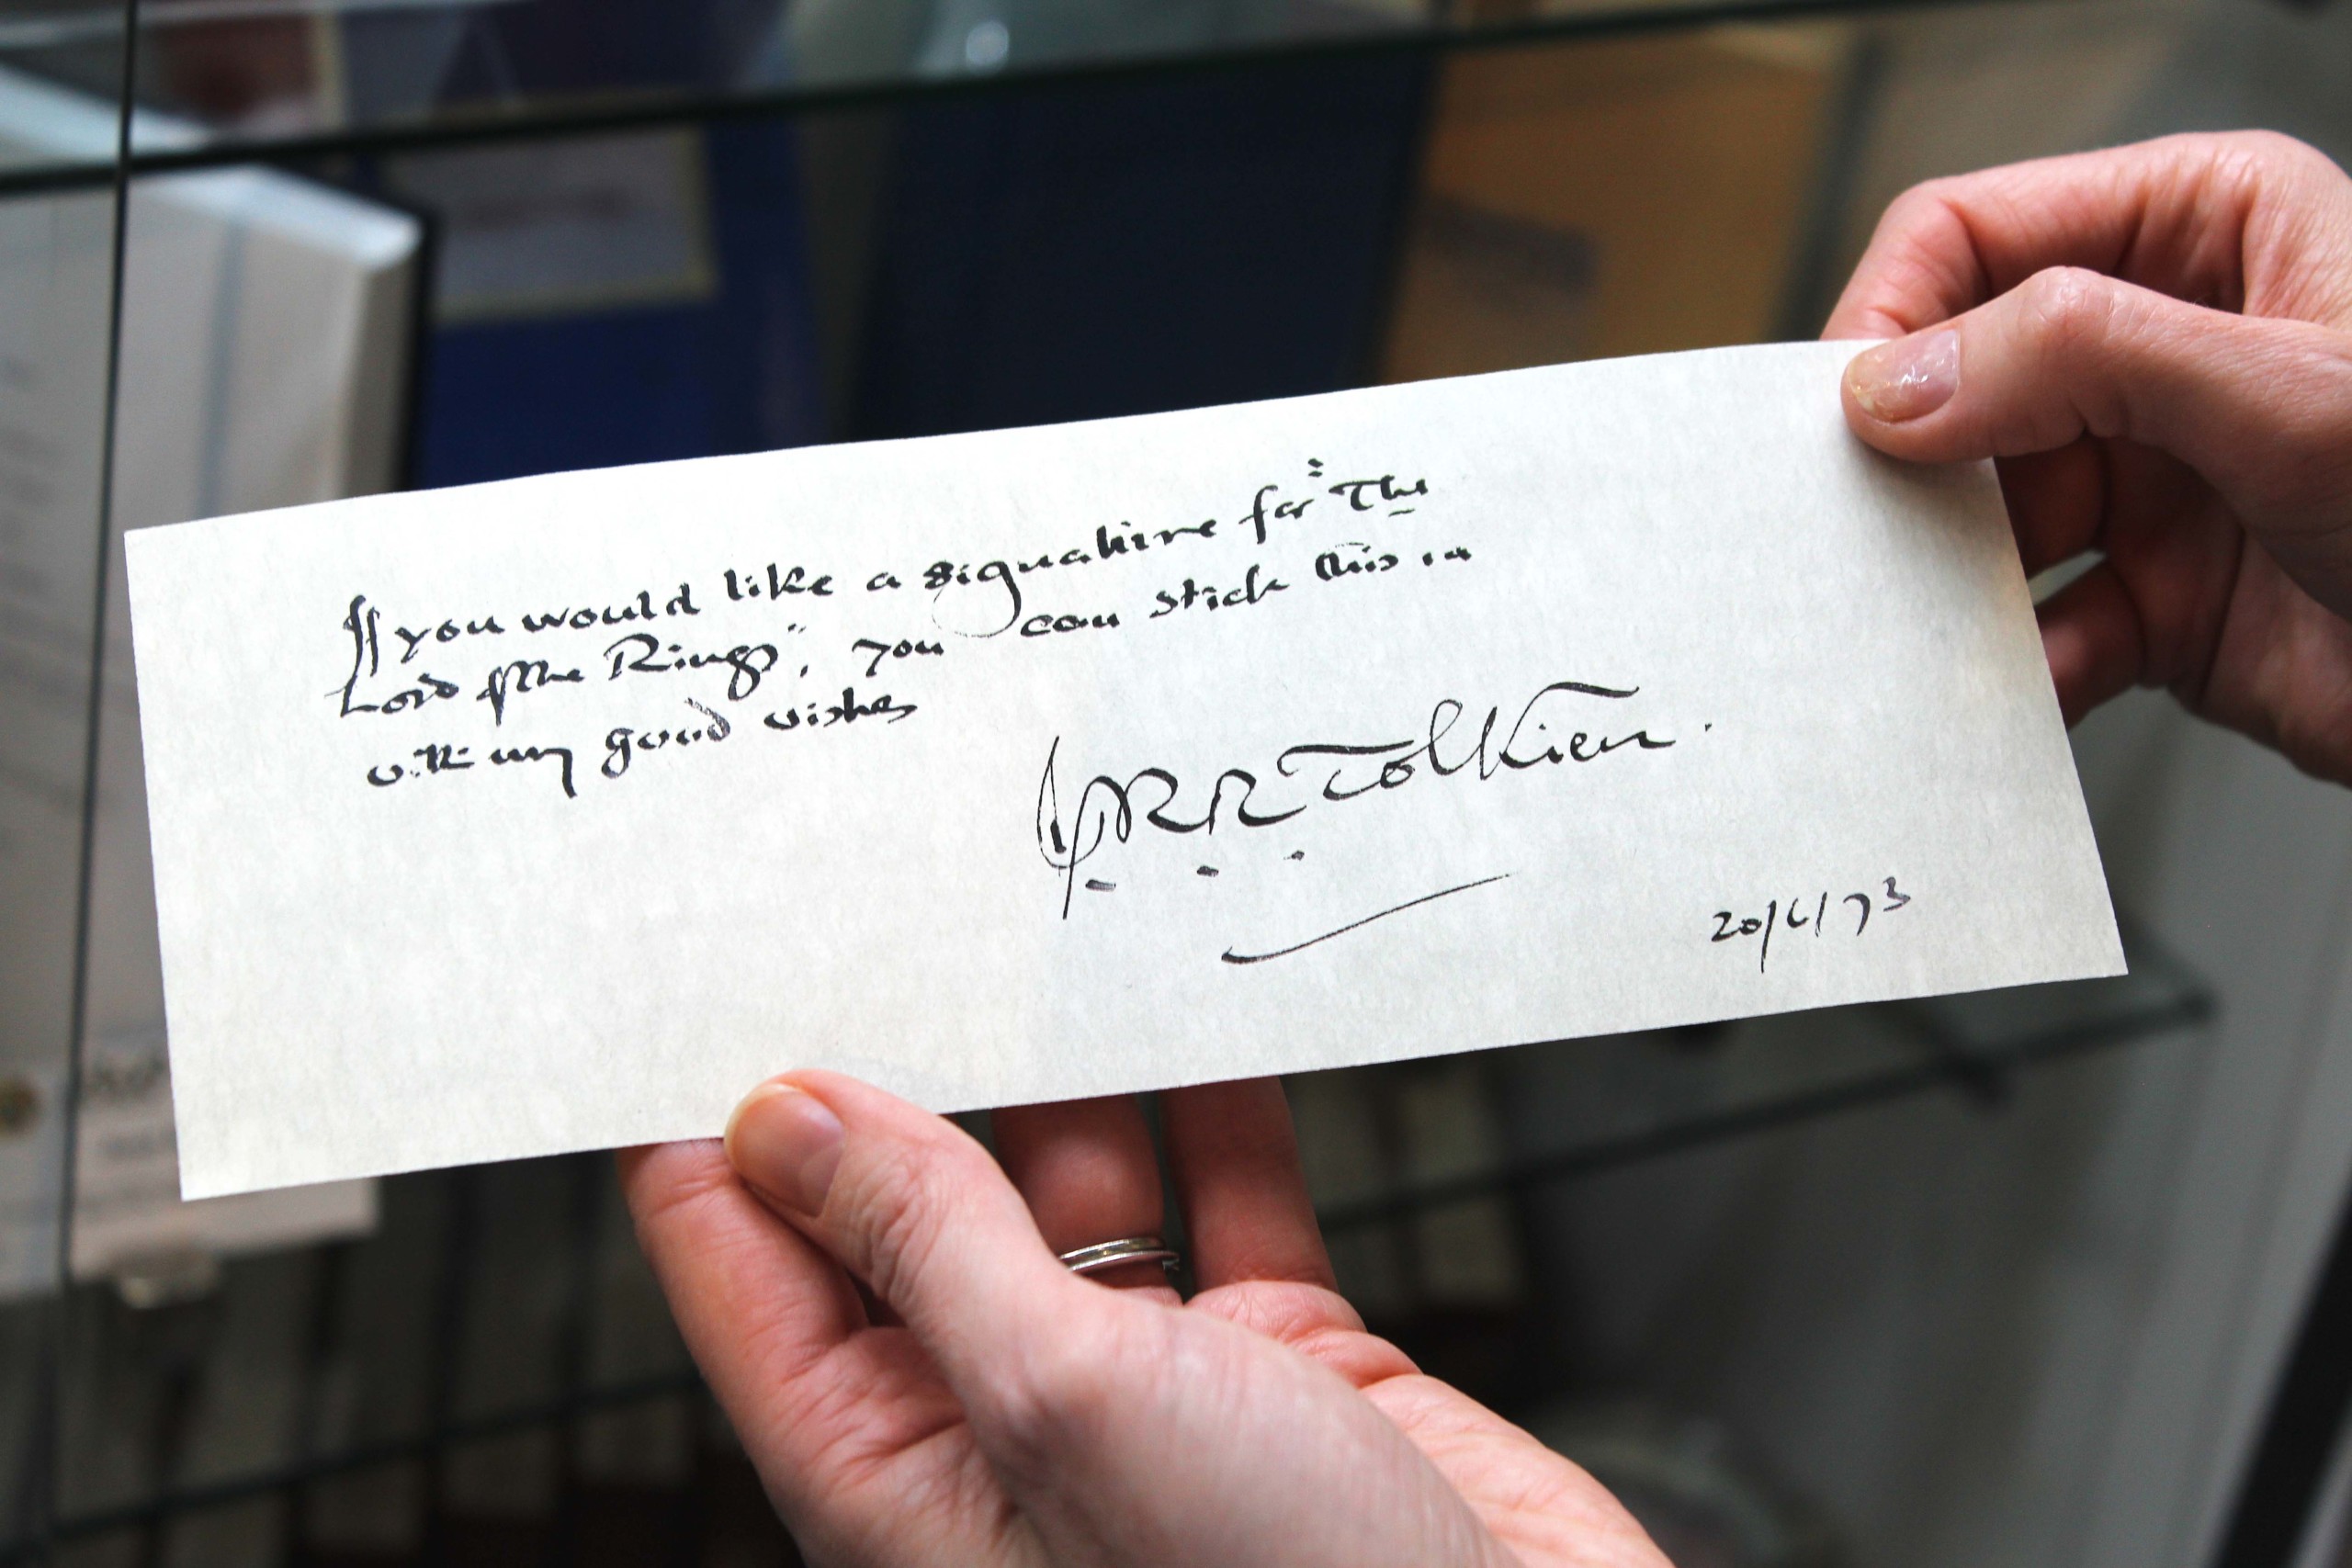 If you would like a signature for "The
Lord of the Rings", you can stick this in
with my good wishes
J.R.R.Tolkien.
20/6/73